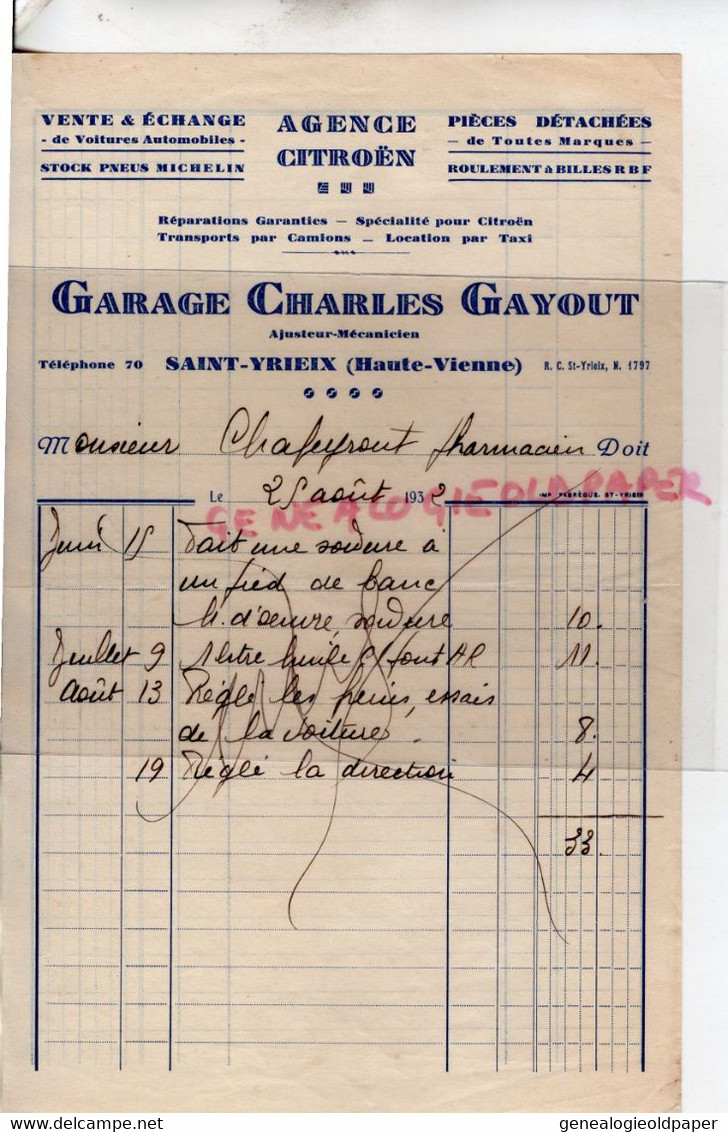 VENTE & ÉCHANGE
- de Voitures Automobiles -
STOCK PNEUS MICHELIN
AGENCE
CITROËN
PIÈCES DÉTACHÉES
— de Toutes Marques —
ROULEMENT à BILLES R B F
Réparations Garanties — Spécialité pour Citroën
Transports par Camions — Location par Taxi
GARAGE CHARLES GAYOUT
Ajusteur-Mécanicien
Téléphone 70 SAINT-YRIEIX (Haute-Vienne) R. C. St-Yrieix, N. 1797
Monsieur pharmacien Doit
Le 25 août 1932
IMP. FABRÈGUE. ST-YRIEIX
GENEALOGIEOLDPAPER
Juin 15 Fait une soudure à
un pied de banc
M. d'oeuvre, soudure 10.
Juillet 9 1 litre huile pont AR 11.
Août 13 Réglé les freins, essais
de la voiture. 8.
19 Réglé la direction 4
33.
Delcampe.net
genealogieoldpaper